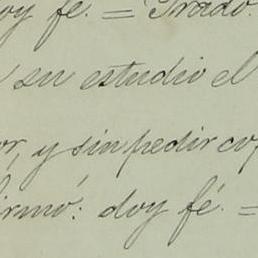 oy fé. = Prado.
su estudio el
or, y sin pedir cop
irmó: doy fé. =